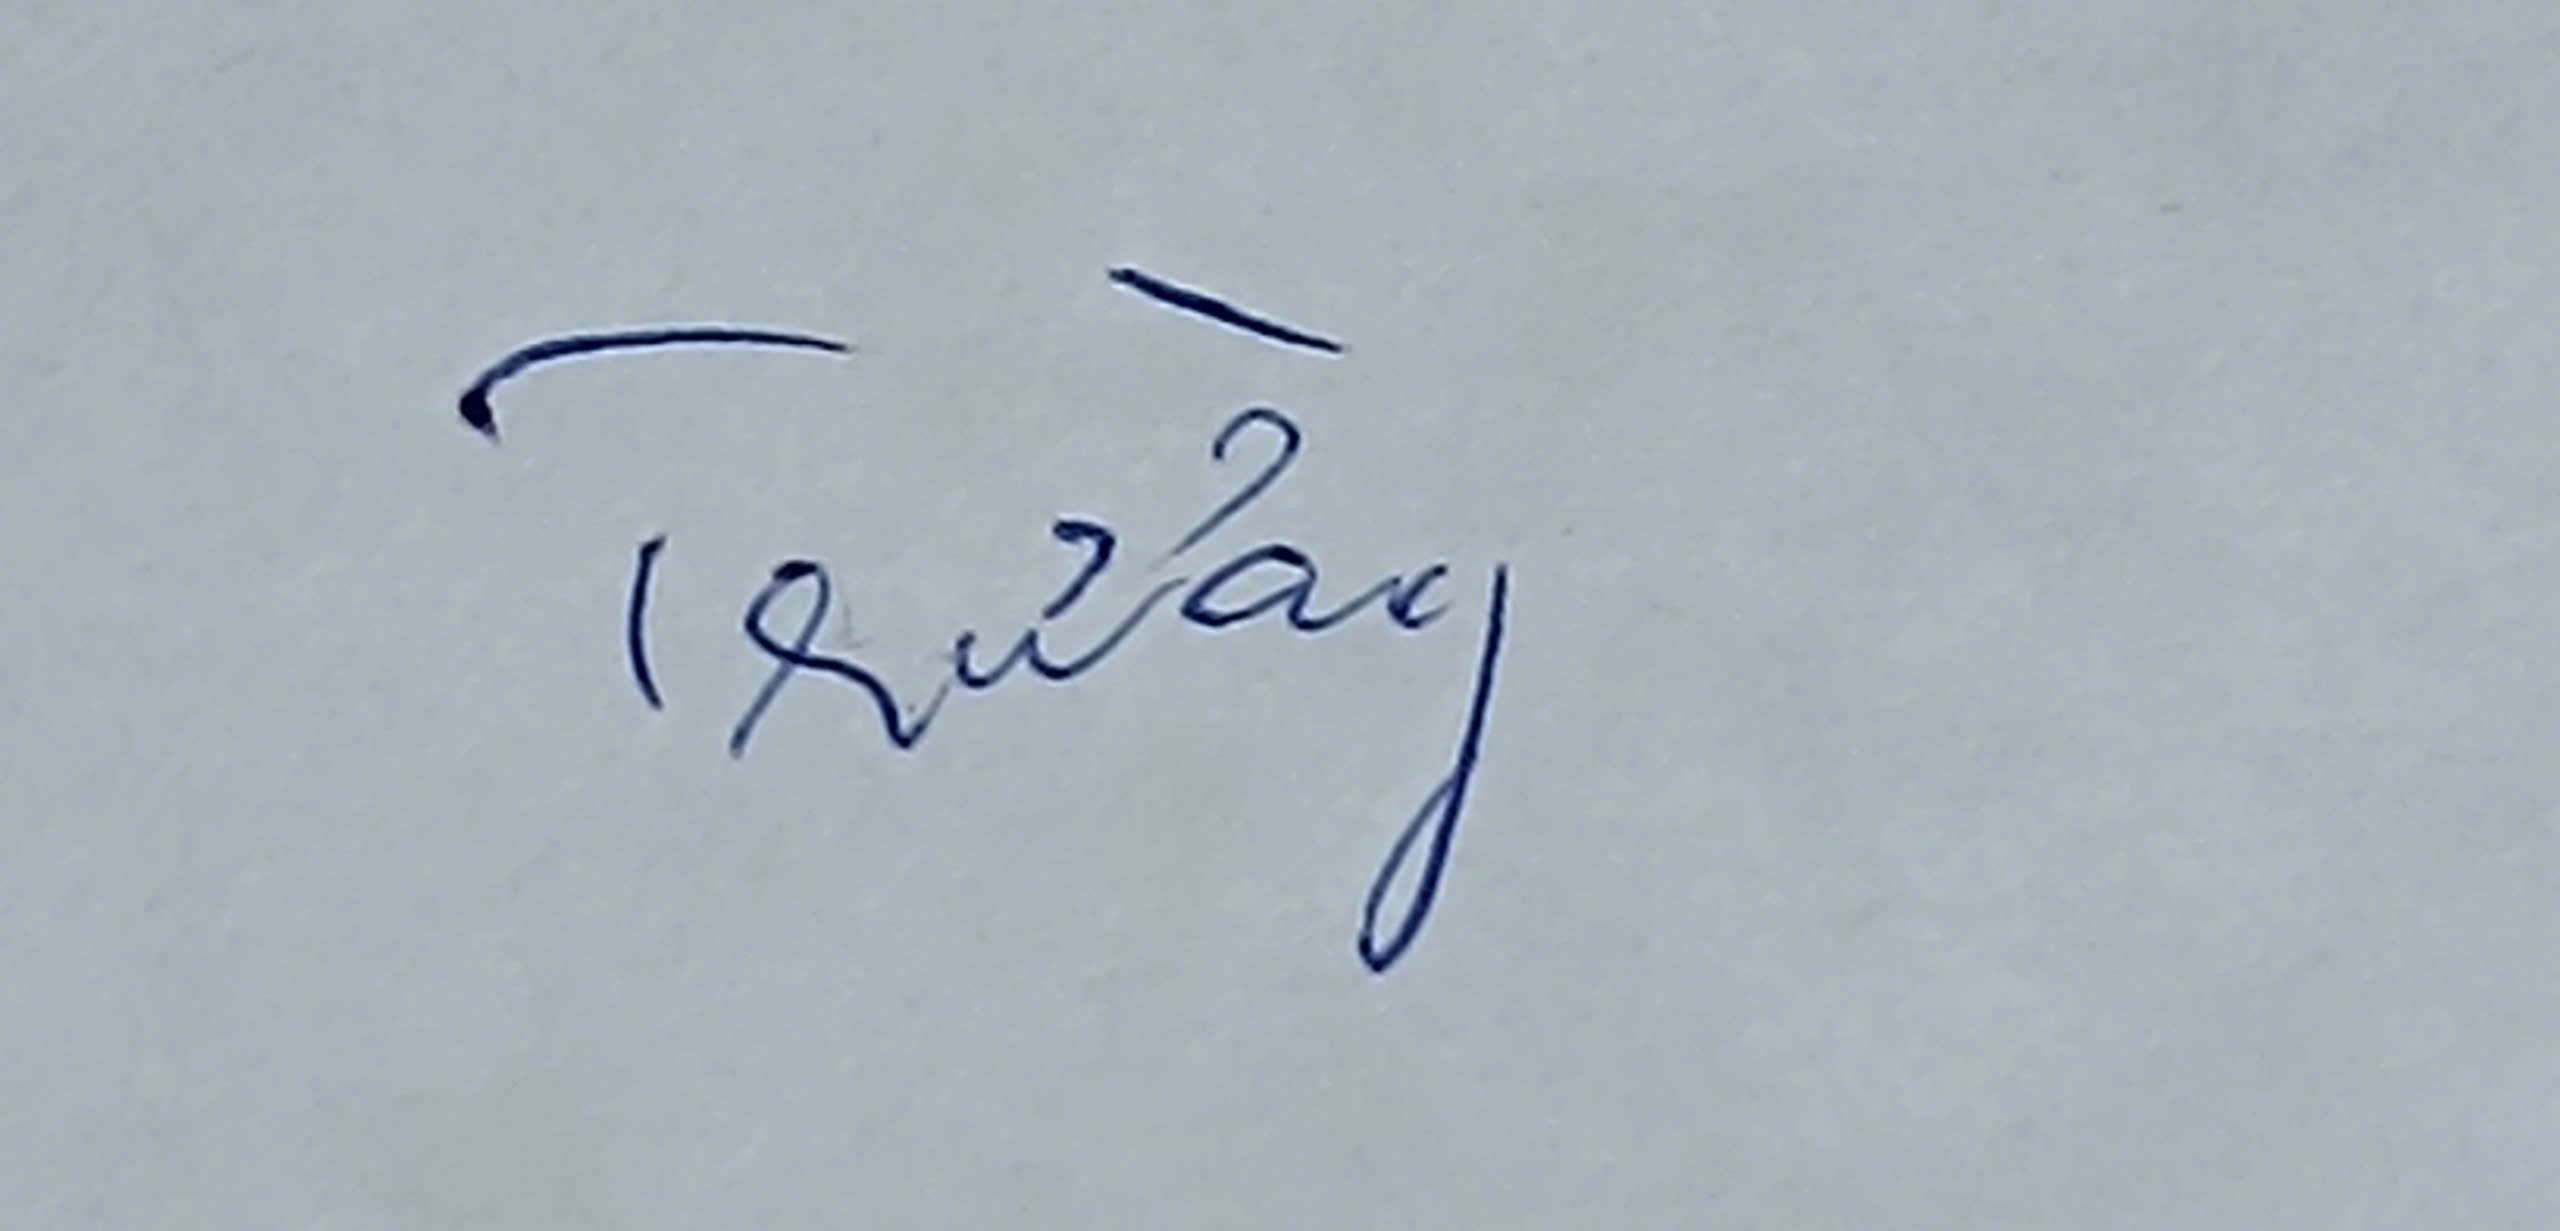 Trường